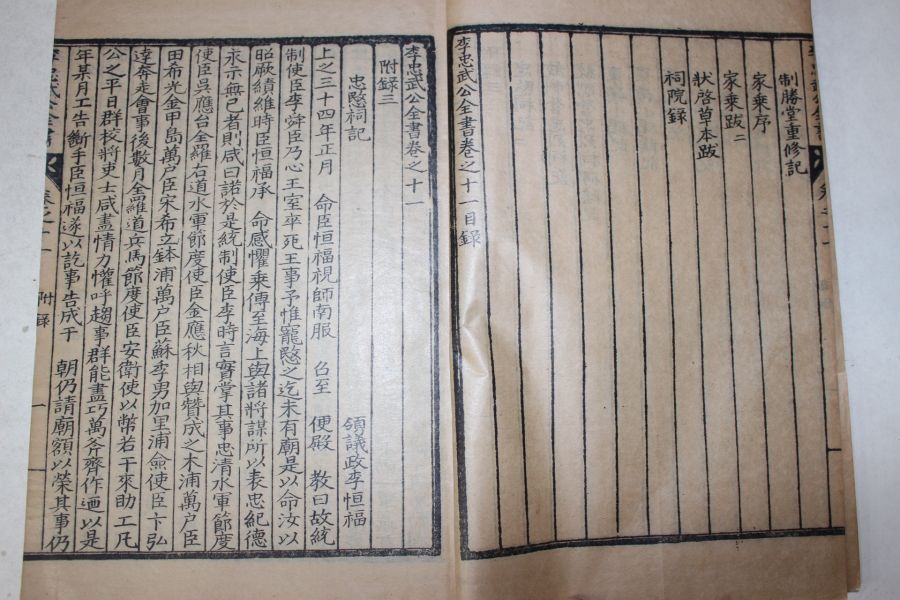 制勝堂重修記
家乗序
家乗跋二
狀啓草本跋
祠院録
李忠武公全書卷之十一目録
李忠武公全書卷之十一
附録三
忠愍祠記 領議政李恒福
上之三十四年正月 命臣恒福視師南服 召至 便殿 教曰故統
制使臣李舜臣乃心王室卒死王事予惟寵愍之迄未有廟是以命汝以
昭厥績維時臣恒福承 命感懼乗傳至海上與諸將謀所以表忠紀德
永示無已者則咸曰諾於是統制使臣李時言實掌其事忠清水軍節度
使臣吳應台全羅右道水軍節度使臣金應秋相與贊成之木浦萬户臣
田希光金甲島萬户臣宋希立鉢浦萬户臣蘇季男加里浦僉使臣卞弘
達奔走會事後數月全羅道兵馬節度使臣安衛使以幣若干來助工凡
公之平日群校將吏士咸盡情力懽呼趨事群能盡巧萬斧齊作迺以是
年某月工告斷手臣恒福遂以訖事告成于 朝仍請廟額以榮其事仍
附録
一